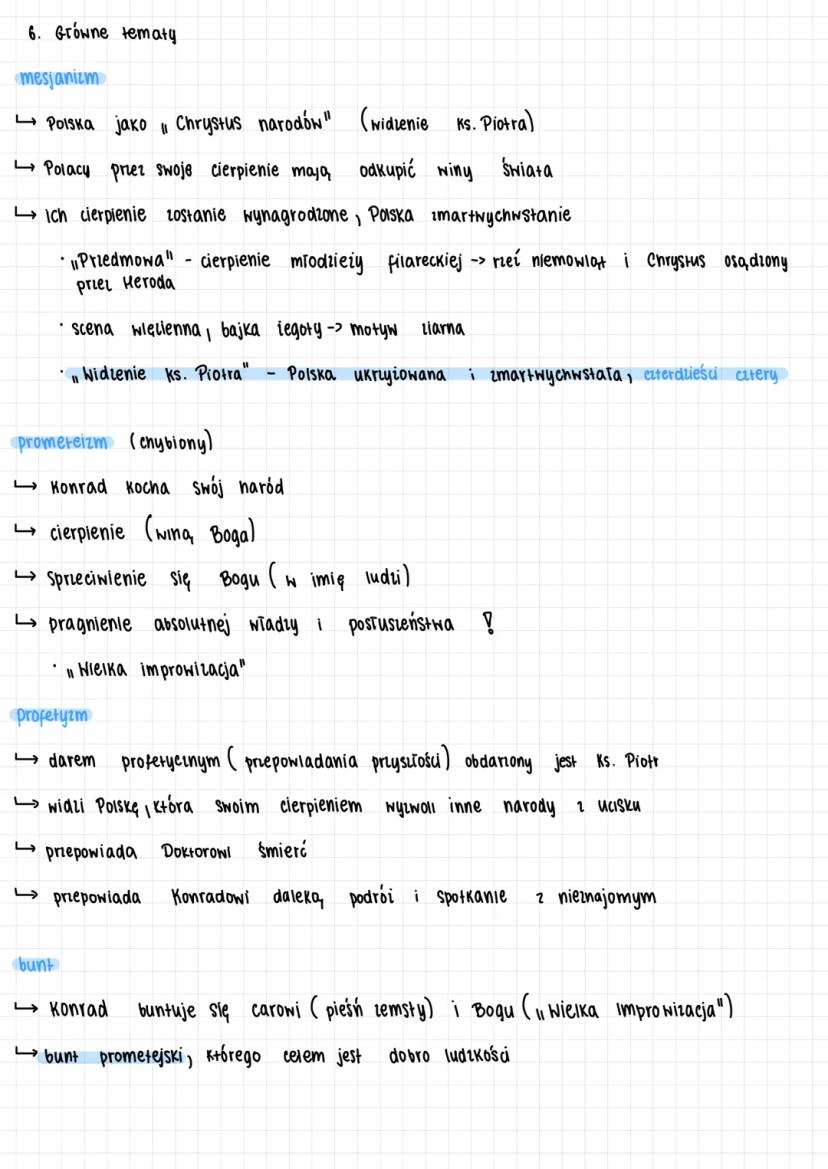 6. Główne tematy
mesjanizm
↳ Polska jako „Chrystus narodów" (widzenie ks. Piotra)
↳ Polacy przez swoje cierpienie mają odkupić winy świata
↳ Ich cierpienie zostanie wynagrodzone, Polska zmartwychwstanie
· „Przedmowa" - cierpienie młodzieży filareckiej -> rzeź niemowląt i Chrystus osądzony
przez Heroda
· scena więzienna, bajka Żegoty -> motyw ziarna
· „Widzenie ks. Piotra" - Polska ukrzyżowana i zmartwychwstała, czterdzieści cztery
prometeizm (chybiony)
↳ Konrad kocha swój naród
↳ cierpienie (winą Boga)
↳ Sprzeciwienie się Bogu (w imię ludzi)
↳ pragnienie absolutnej władzy i posłuszeństwa !
· „Wielka improwizacja"
profetyzm
↳ darem profetycznym (przepowiadania przyszłości) obdarzony jest Ks. Piotr
↳ widzi Polskę, która swoim cierpieniem wyzwoli inne narody z ucisku
↳ przepowiada Doktorowi śmierć
↳ przepowiada Konradowi daleką podróż i spotkanie z nieznajomym
bunt
↳ Konrad buntuje się carowi (pieśń zemsty) i Bogu („Wielka Improwizacja")
↳ bunt prometejski, którego celem jest dobro ludzkości